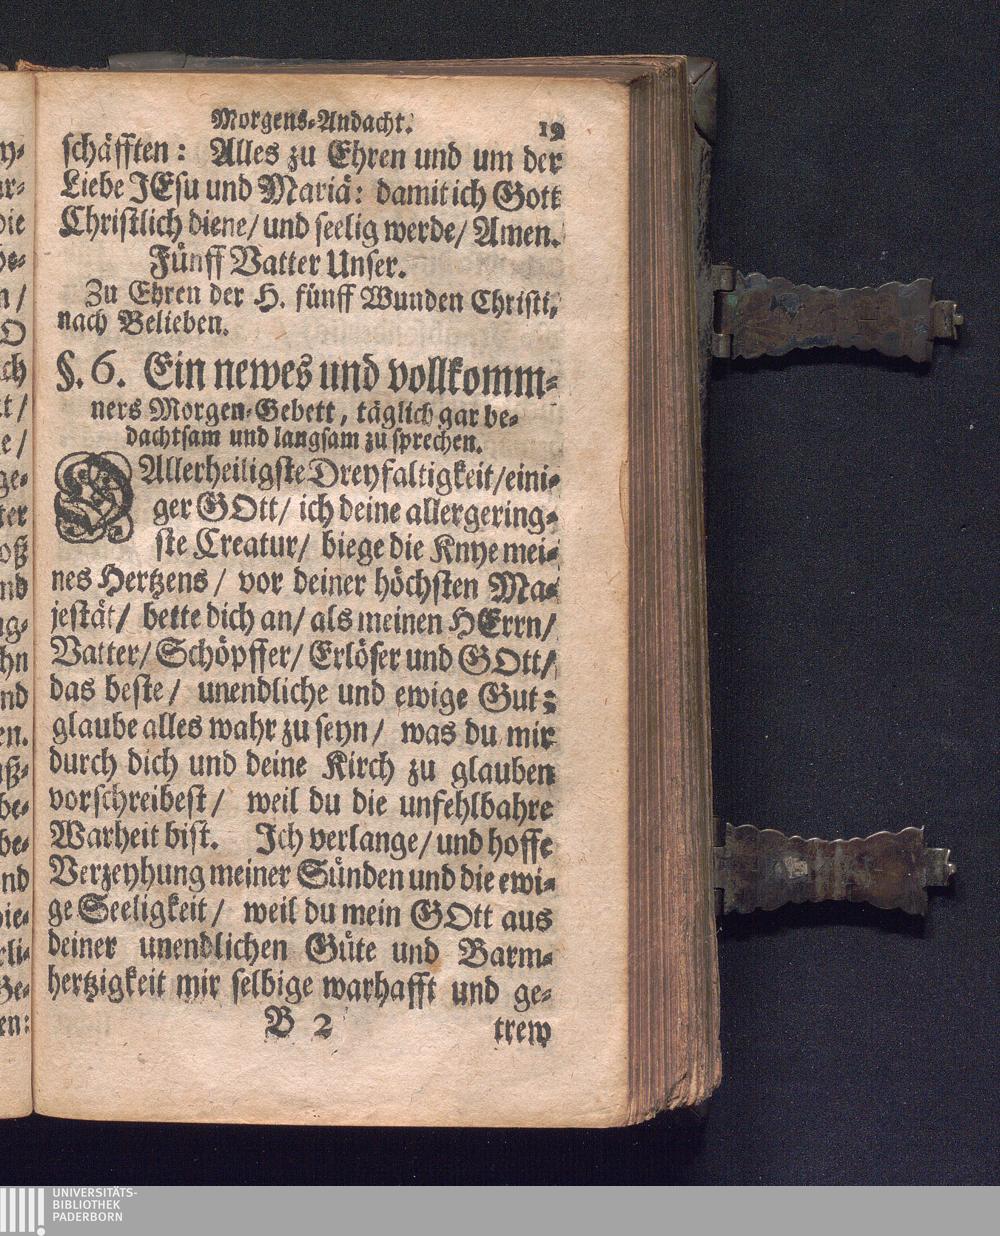 Morgens-Andacht. 19
schäfften: Alles zu Ehren und um der
Liebe JEsu und Mariä: damit ich Gott
Christlich diene/ und seelig werde/ Amen.
Fünff Vatter Unser.
Zu Ehren der H. fünff Wunden Christi,
nach Belieben.
§. 6. Ein newes und vollkomm-
ners Morgen-Gebett, täglich gar be-
dachtsam und langsam zu sprechen.
O Allerheiligste Dreyfaltigkeit/ eini-
ger GOtt/ ich deine allergering-
ste Creatur/ biege die Knye mei-
nes Hertzens/ vor deiner höchsten Ma-
jestät/ bette dich an/ als meinen HErrn/
Vatter/ Schöpffer/ Erlöser und GOtt/
das beste/ unendliche und ewige Gut:
glaube alles wahr zu seyn/ was du mir
durch dich und deine Kirch zu glauben
vorschreibest/ weil du die unfehlbahre
Warheit bist. Ich verlange/ und hoffe
Verzeyhung meiner Sünden und die ewi-
ge Seeligkeit/ weil du mein GOtt aus
deiner unendlichen Güte und Barm-
hertzigkeit mir selbige warhafft und ge-
B 2 trew
UNIVERSITÄTS-
BIBLIOTHEK
PADERBORN